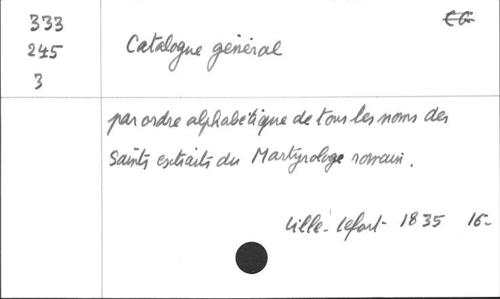 333
245
3
Catalogue général
par ordre alphabétique de tous les noms des
Saints extraits du Martyrologe romain.
Lille - Lefort - 1835 16-